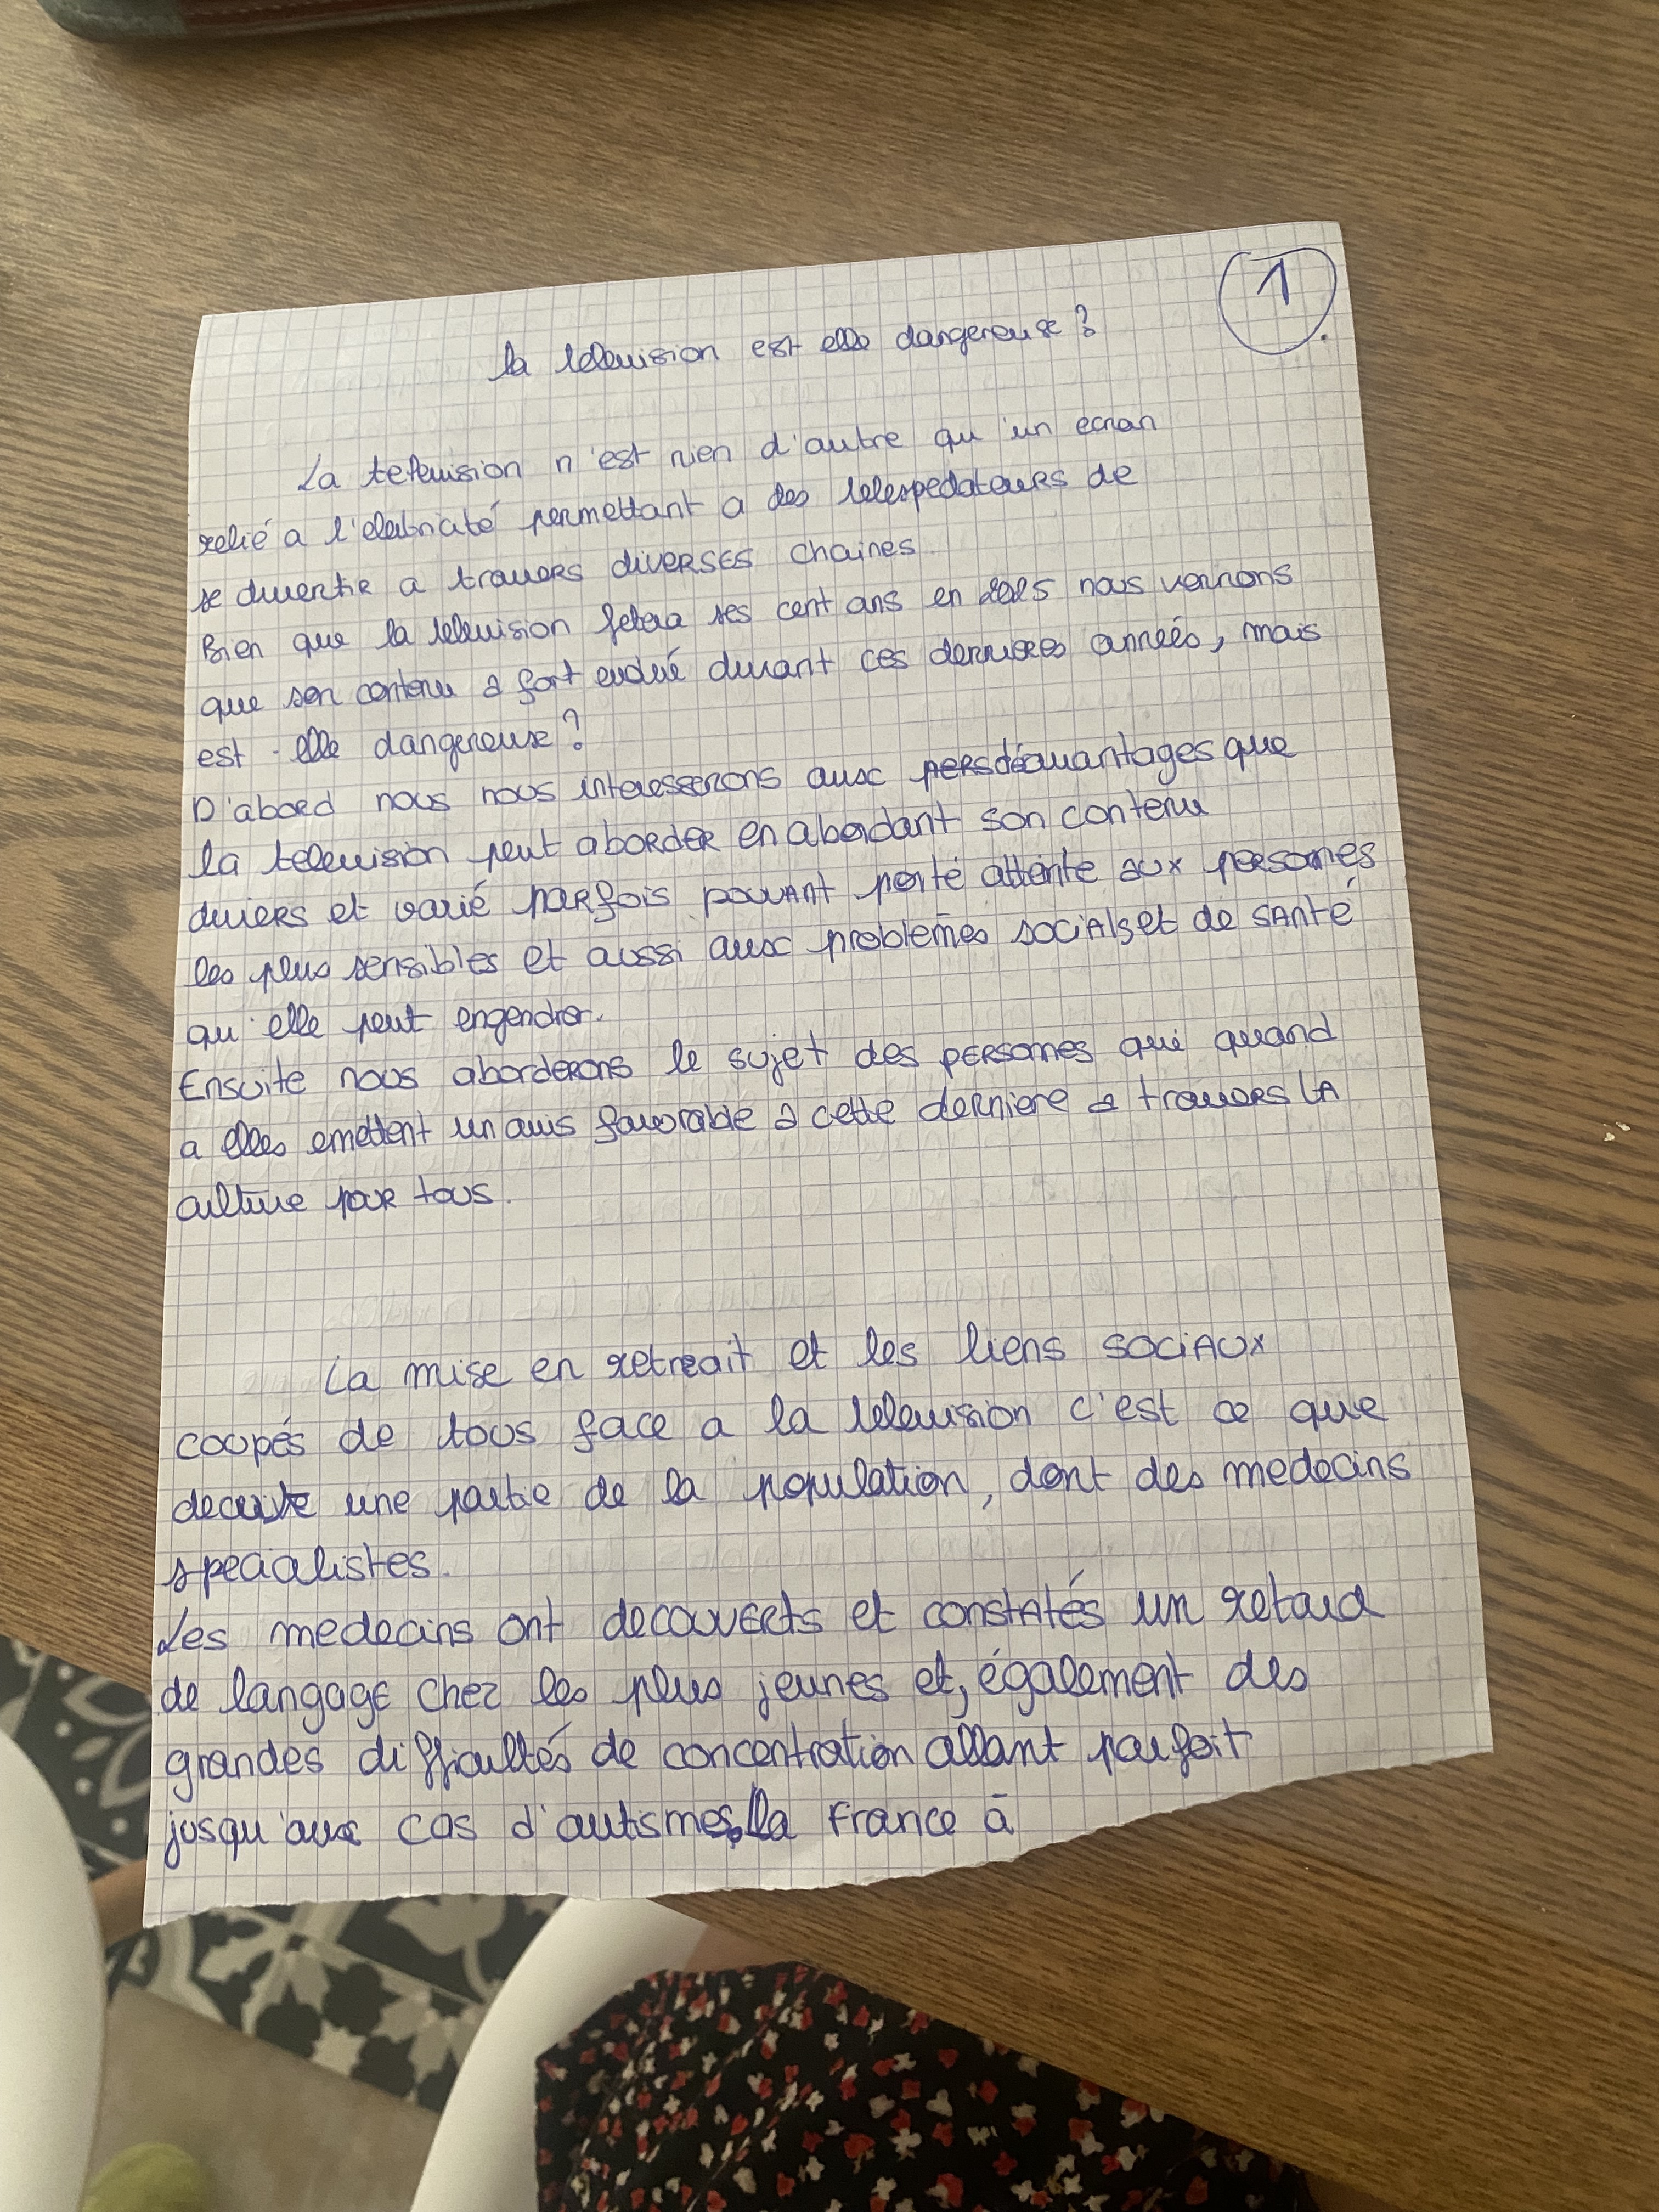 1
la television est elle dangereuse ?
La television n'est rien d'autre qu'un ecran
relié a l'electricité permettant a des telespectateurs de
se divertir a travers diverses chaines.
Bien que la television fetera ses cent ans en 2025 nous verrons
que son contenu a fort evolué durant ces dernieres années, mais
est-elle dangereuse ?
D'abord nous nous interesserons aux désavantages que
la television peut aborder en abordant son contenu
divers et varié parfois pouvant porté atteinte aux personnes
les plus sensibles et aussi aux problemes socials et de santé
qu'elle peut engendrer.
Ensuite nous aborderons le sujet des personnes qui quand
a elles emettent un avis favorable a cette derniere a travers la
culture pour tous.
La mise en retreait et les liens sociaux
coupés de tous face a la television c'est ce que
une partie de la population, dont des medecins
specialistes.
Les medecins ont decouverts et constatés un retard
de langage chez les plus jeunes et, également des
grandes difficultés de concentration allant parfoit
jusqu'aux cas d'autismes. la France à